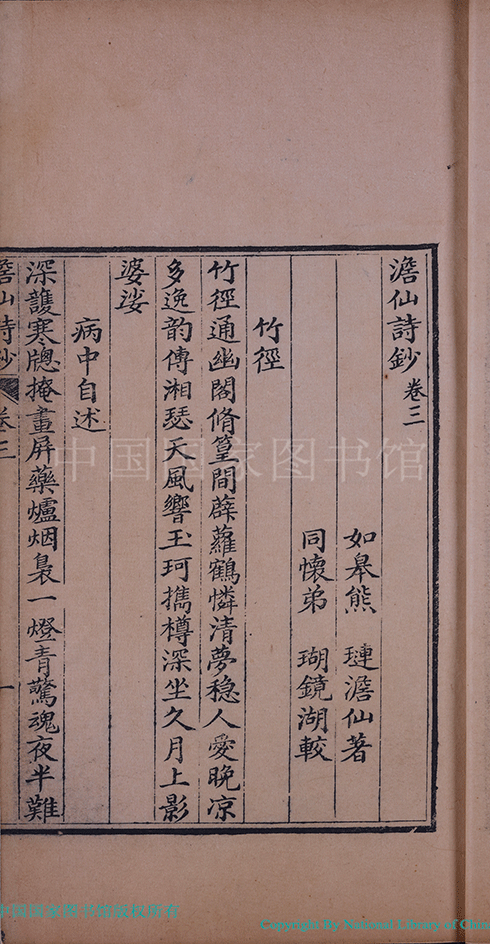 澹仙詩鈔卷三
如皋熊　璉澹仙著
同懷弟　瑚鏡湖較
竹徑
竹徑通幽閣脩篁間薜蘿鶴憐清夢穏人愛晩凉
多逸韵傳湘瑟天風響玉珂携樽深坐久月上影
婆娑
病中自述
深護寒牎掩畫屏藥爐烟裊一燈青驚魂夜半難
澹仙詩鈔　卷三　一
中国国家图书馆
中国国家图书馆版权所有
Copyright By National Library of Chin